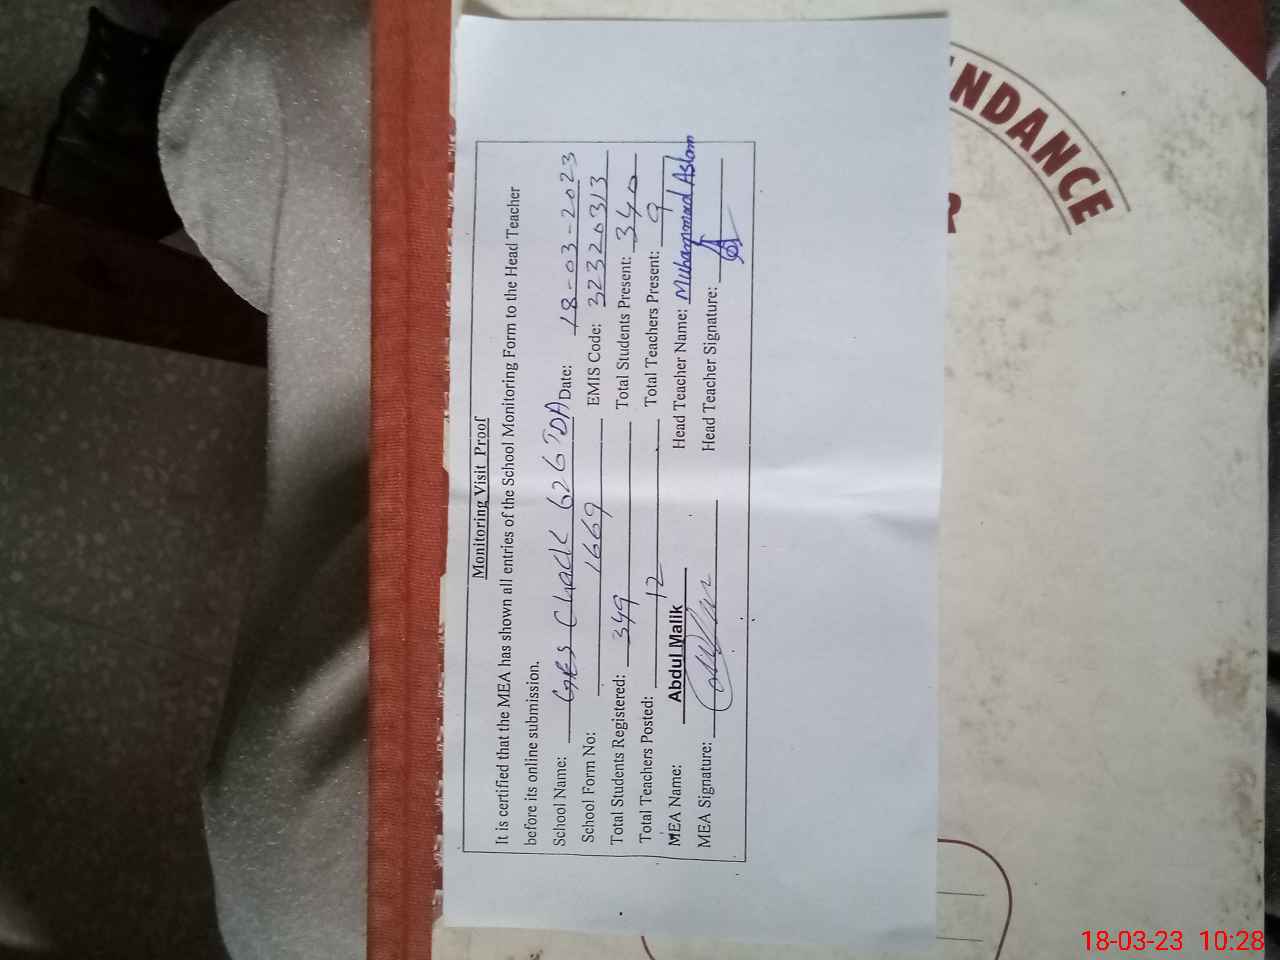 Monitoring Visit Proof
It is certified that the MEA has shown all entries of the School Monitoring Form to the Head Teacher
before its online submission.
School Name: GES Chack 626 TDA Date: 18-03-2023
School Form No: 1669 EMIS Code: 32320313
Total Students Registered: 349 Total Students Present: 340
Total Teachers Posted: 12 Total Teachers Present: 9
MEA Name: Abdul Malik Head Teacher Name: Muhammad Aslam
MEA Signature: Head Teacher Signature:
NDANCE
R
18-03-23 10:28